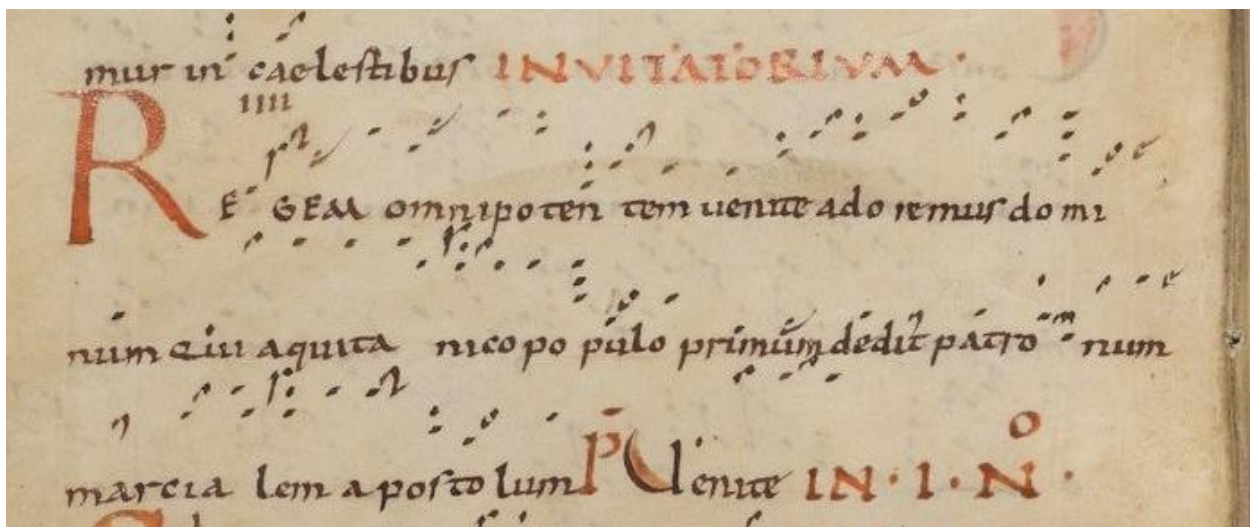 mur in caelestibus INVITATORIVM ·
IIII
REGEM omnipotentem uenite adoremus domi
num Qui aquitanico populo primum dedit patronum
marcialem apostolum P Uenite IN · I · NO ·